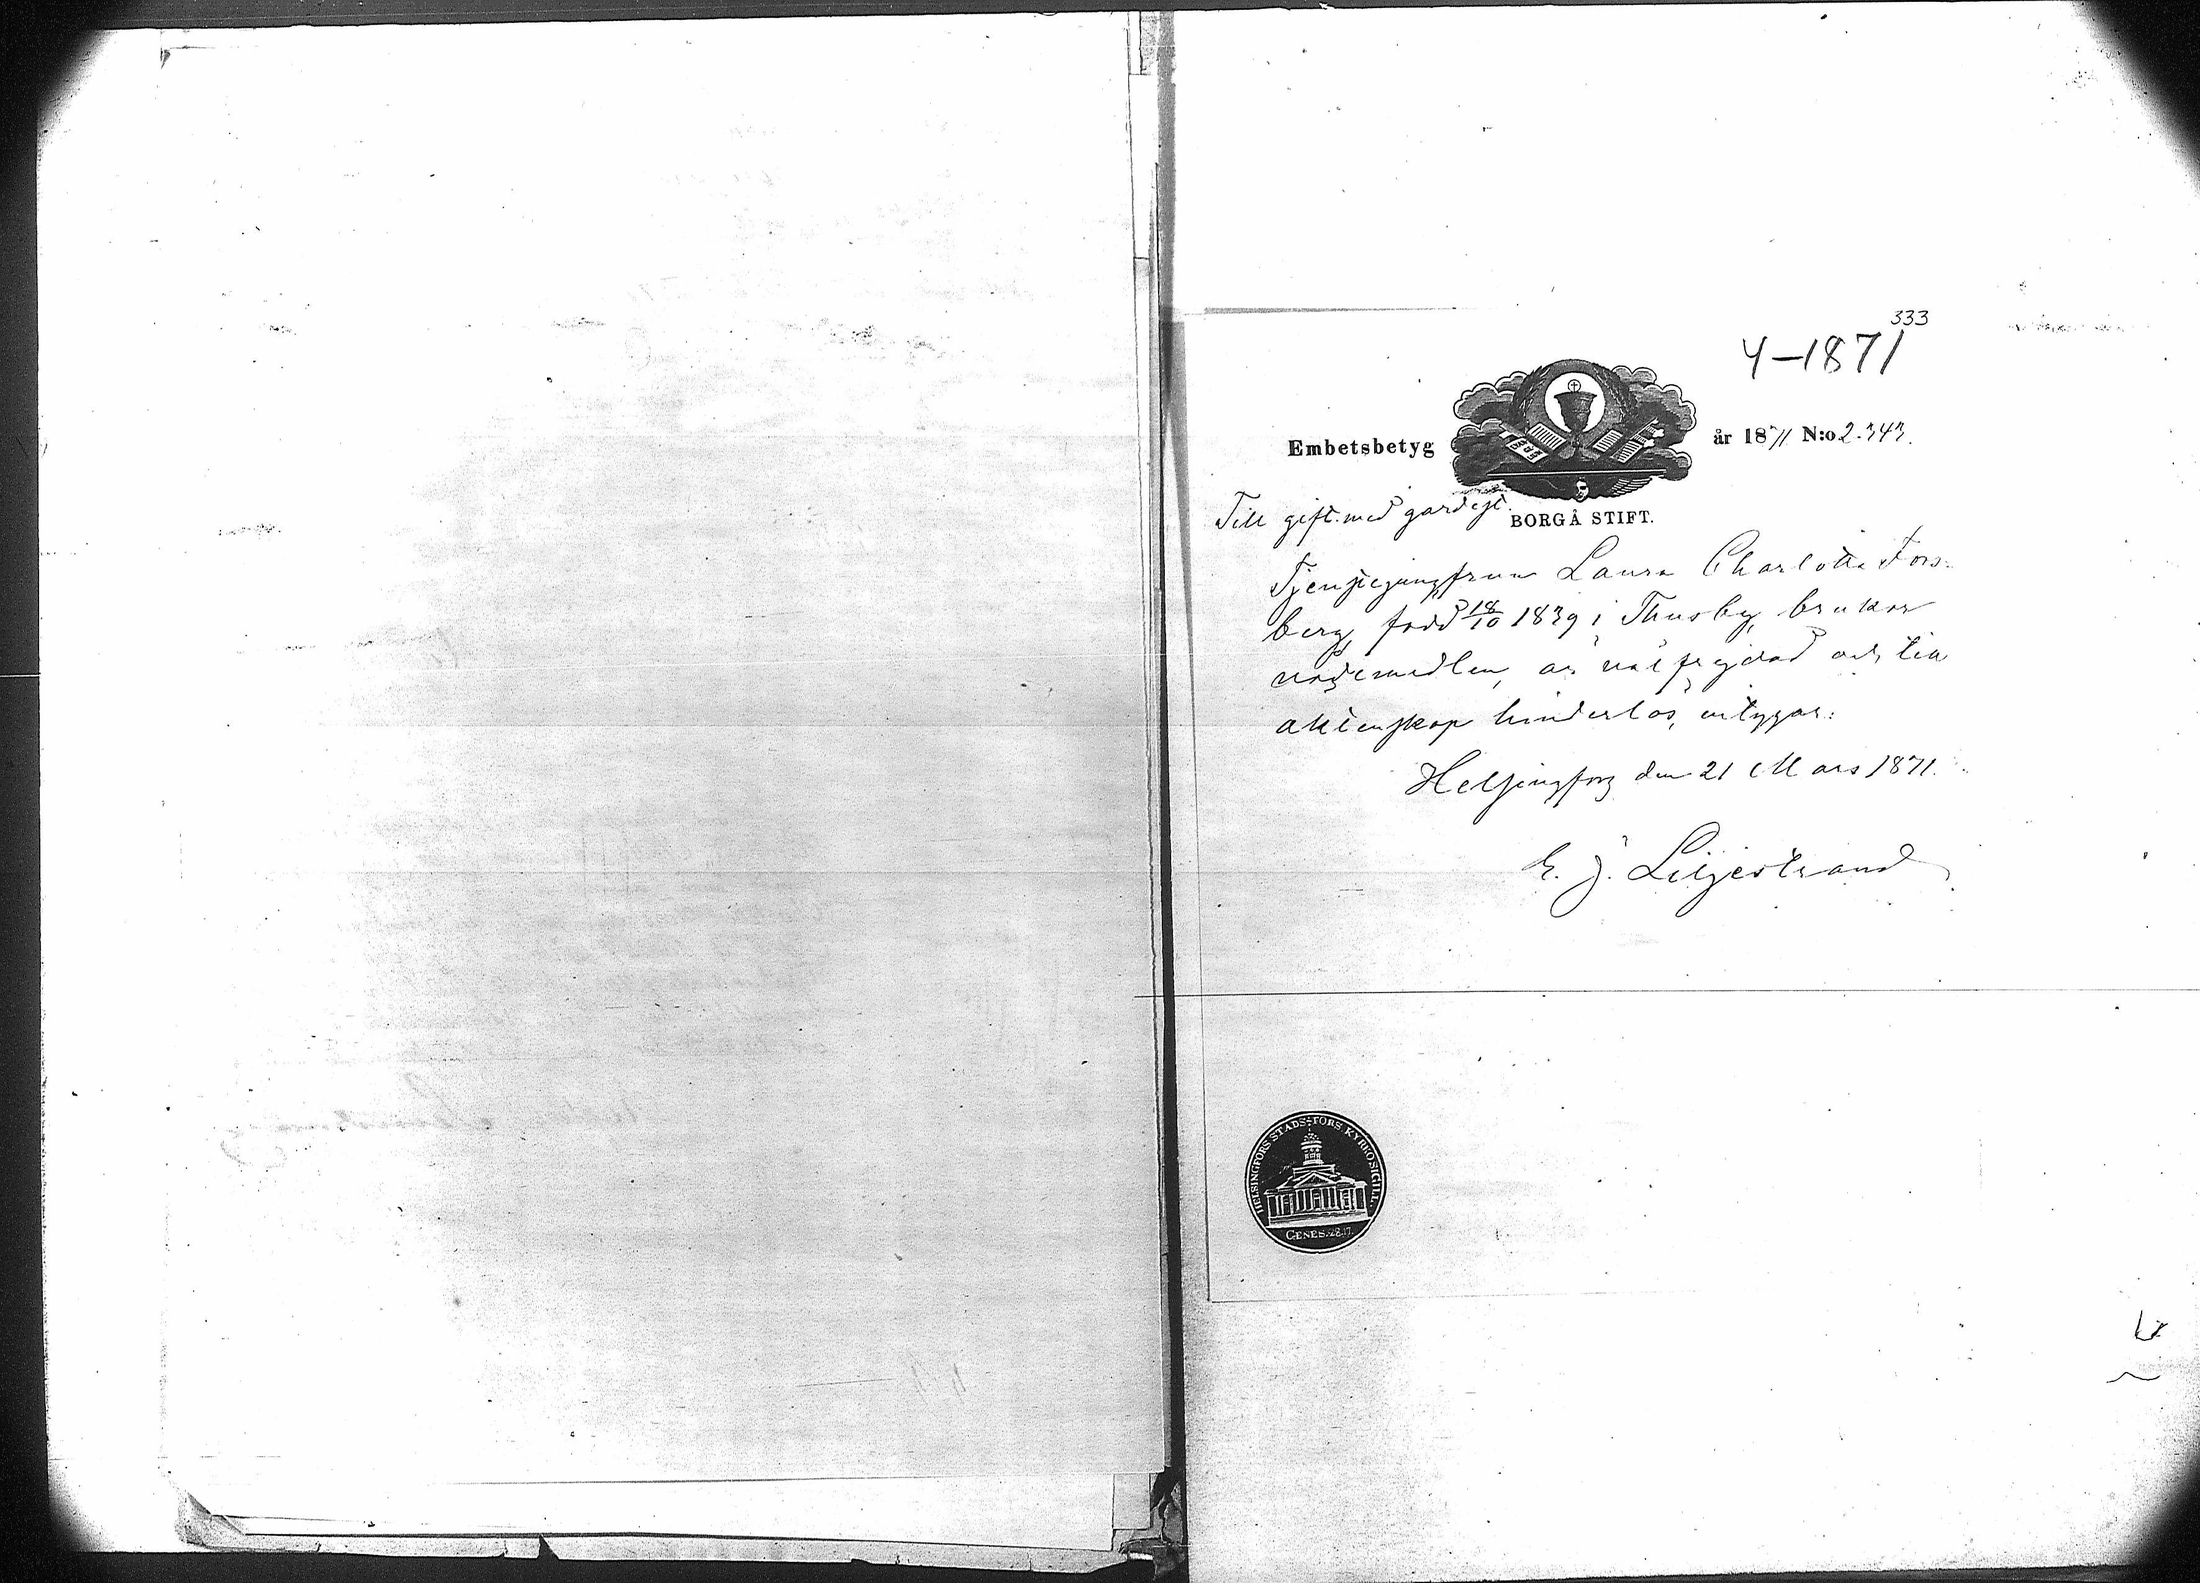 333
4-1871
Embetsbetyg år 1871 N:o 2.343.
Till gift. med gardist.
BORGÅ STIFT.
Tjenstejungfrun Laura Charlotta Fors-
berg, född 18/10 1839 i Thusby, brukar
nådemedlen, är välfrejdad och till
äktenskap hinderlös, intygar:
Helsingfors den 21 Mars 1871.
E. J. Liljestrand
HELSINGFORS STADS-FÖRS. KYRKOSIGILL.
GENES. 28.17.